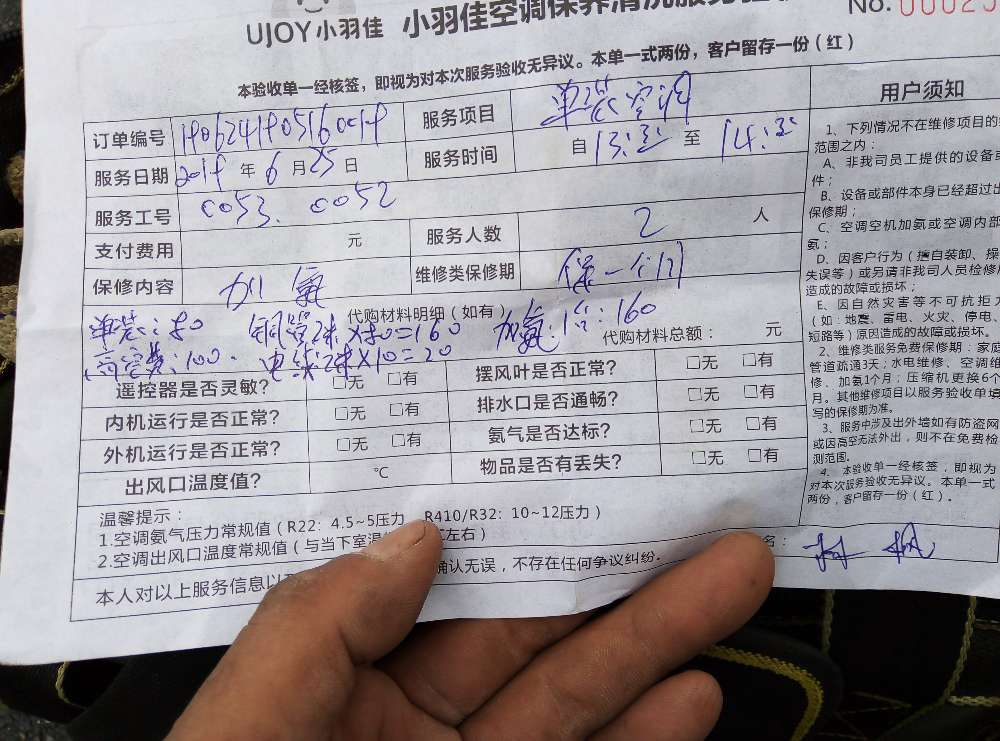 UJOY小羽佳 小羽佳空调保养清洗服务
No.
本验收单一经核签，即视为对本次服务验收无异议。本单一式两份，客户留存一份（红）
订单编号
服务项目 单装空调
服务日期 2019 年 6 月 25 日
服务时间 自 13:30 至 14:30
服务工号 0053. 0052
支付费用 元
服务人数 2 人
保修内容 加氟
维修类保修期 保一个月
代购材料明细（如有）
单装:80 铜管2米×80=160 加氟:1台:160
高空费:100. 电线:2米×10=20
代购材料总额： 元
遥控器是否灵敏？ □无 □有
摆风叶是否正常？ □无 □有
内机运行是否正常？ □无 □有
排水口是否通畅？ □无 □有
外机运行是否正常？ □无 □有
氨气是否达标？ □无 □有
出风口温度值？ ℃
物品是否有丢失？ □无 □有
温馨提示：
1.空调氨气压力常规值（R22：4.5~5压力 R410/R32：10~12压力）
2.空调出风口温度常规值（与当下室温 左右）
本人对以上服务信息以 确认无误，不存在任何争议纠纷。
名：
用户须知
1、下列情况不在维修项目的
范围之内：
A、非我司员工提供的设备或
件；
B、设备或部件本身已经超过出
保修期；
C、空调空机加氨或空调内部
氨；
D、因客户行为（擅自装卸、操
失误等）或另请非我司人员检修
造成的故障或损坏；
E、因自然灾害等不可抗拒
（如：地震、雷电、火灾、停电、
短路等）原因造成的故障或损坏。
2、维修类服务免费保修期：家庭
管道疏通3天；水电维修、空调维
修、加氨1个月；压缩机更换6个
月。其他维修项目以服务验收单填
写的保修期为准。
3、服务中涉及出外墙如有防盗网
或因高空无法外出，则不在免费检
测范围.
4、本验收单一经核签，即视为
对本次服务验收无异议。本单一式
两份，客户留存一份（红）。